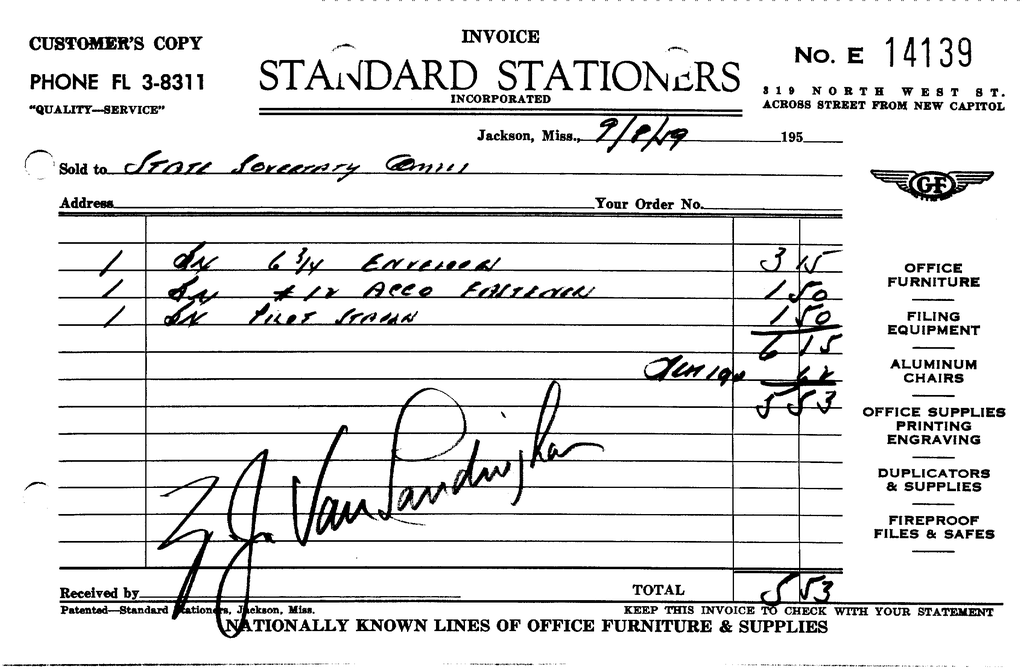 CUSTOMER'S COPY
INVOICE
No. E 14139
PHONE FL 3-8311
STANDARD STATIONERS
"QUALITY—SERVICE"
INCORPORATED
319 NORTH WEST ST.
ACROSS STREET FROM NEW CAPITOL
Jackson, Miss., 9/8/59 195
Sold to State Sovereignty Comm
Address Your Order No.
GF
1 Bx 6 3/4 Envelopes 3 15
1 Bx #12 ACCO Fastener 1 50
1 Bx Pilot Staples 1 50
6 15
Less 10% 62
5 53
OFFICE
FURNITURE
FILING
EQUIPMENT
ALUMINUM
CHAIRS
OFFICE SUPPLIES
PRINTING
ENGRAVING
DUPLICATORS
& SUPPLIES
FIREPROOF
FILES & SAFES
Z. J. Van Landingham
Received by TOTAL 5 53
Patented—Standard Stationers, Jackson, Miss. KEEP THIS INVOICE TO CHECK WITH YOUR STATEMENT
NATIONALLY KNOWN LINES OF OFFICE FURNITURE & SUPPLIES